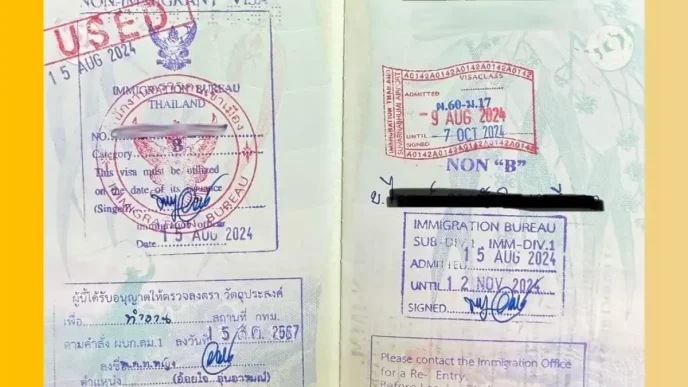 NON-IMMIGRANT VISA
USED
15 AUG 2024
IMMIGRATION BUREAU
THAILAND
NO.
Category B
This visa must be utilized
on the date of its issuance
(Single)
Immigration officer
Date 15 AUG 2024
IMMIGRATION BUREAU
ผู้นี้ได้รับอนุญาตให้ตรวจลงตรา วัตถุประสงค์
เพื่อ ทำงาน สถานที่ กทม.
ตามคำสั่ง ผบก.ตม.1 ลงวันที่ 15 ส.ค. 2567
ลงชื่อ
ตำแหน่ง
A0142A0142A0142A0142A0142A0142
IMMIGRATION THAILAND
SUVARNABHUMI AIRPORT
VISACLASS
ADMITTED
ผ.60-ม.17
- 9 AUG 2024
UNTIL - 7 OCT 2024
SIGNED
A0142A0142A0142A0142A0142A0142
NON “B”
IMMIGRATION BUREAU
SUB-DIV.1 IMM-DIV.1
ADMITTED 15 AUG 2024
UNTIL 12 NOV 2024
SIGNED
Please contact the Immigration Office
for a Re- Entry